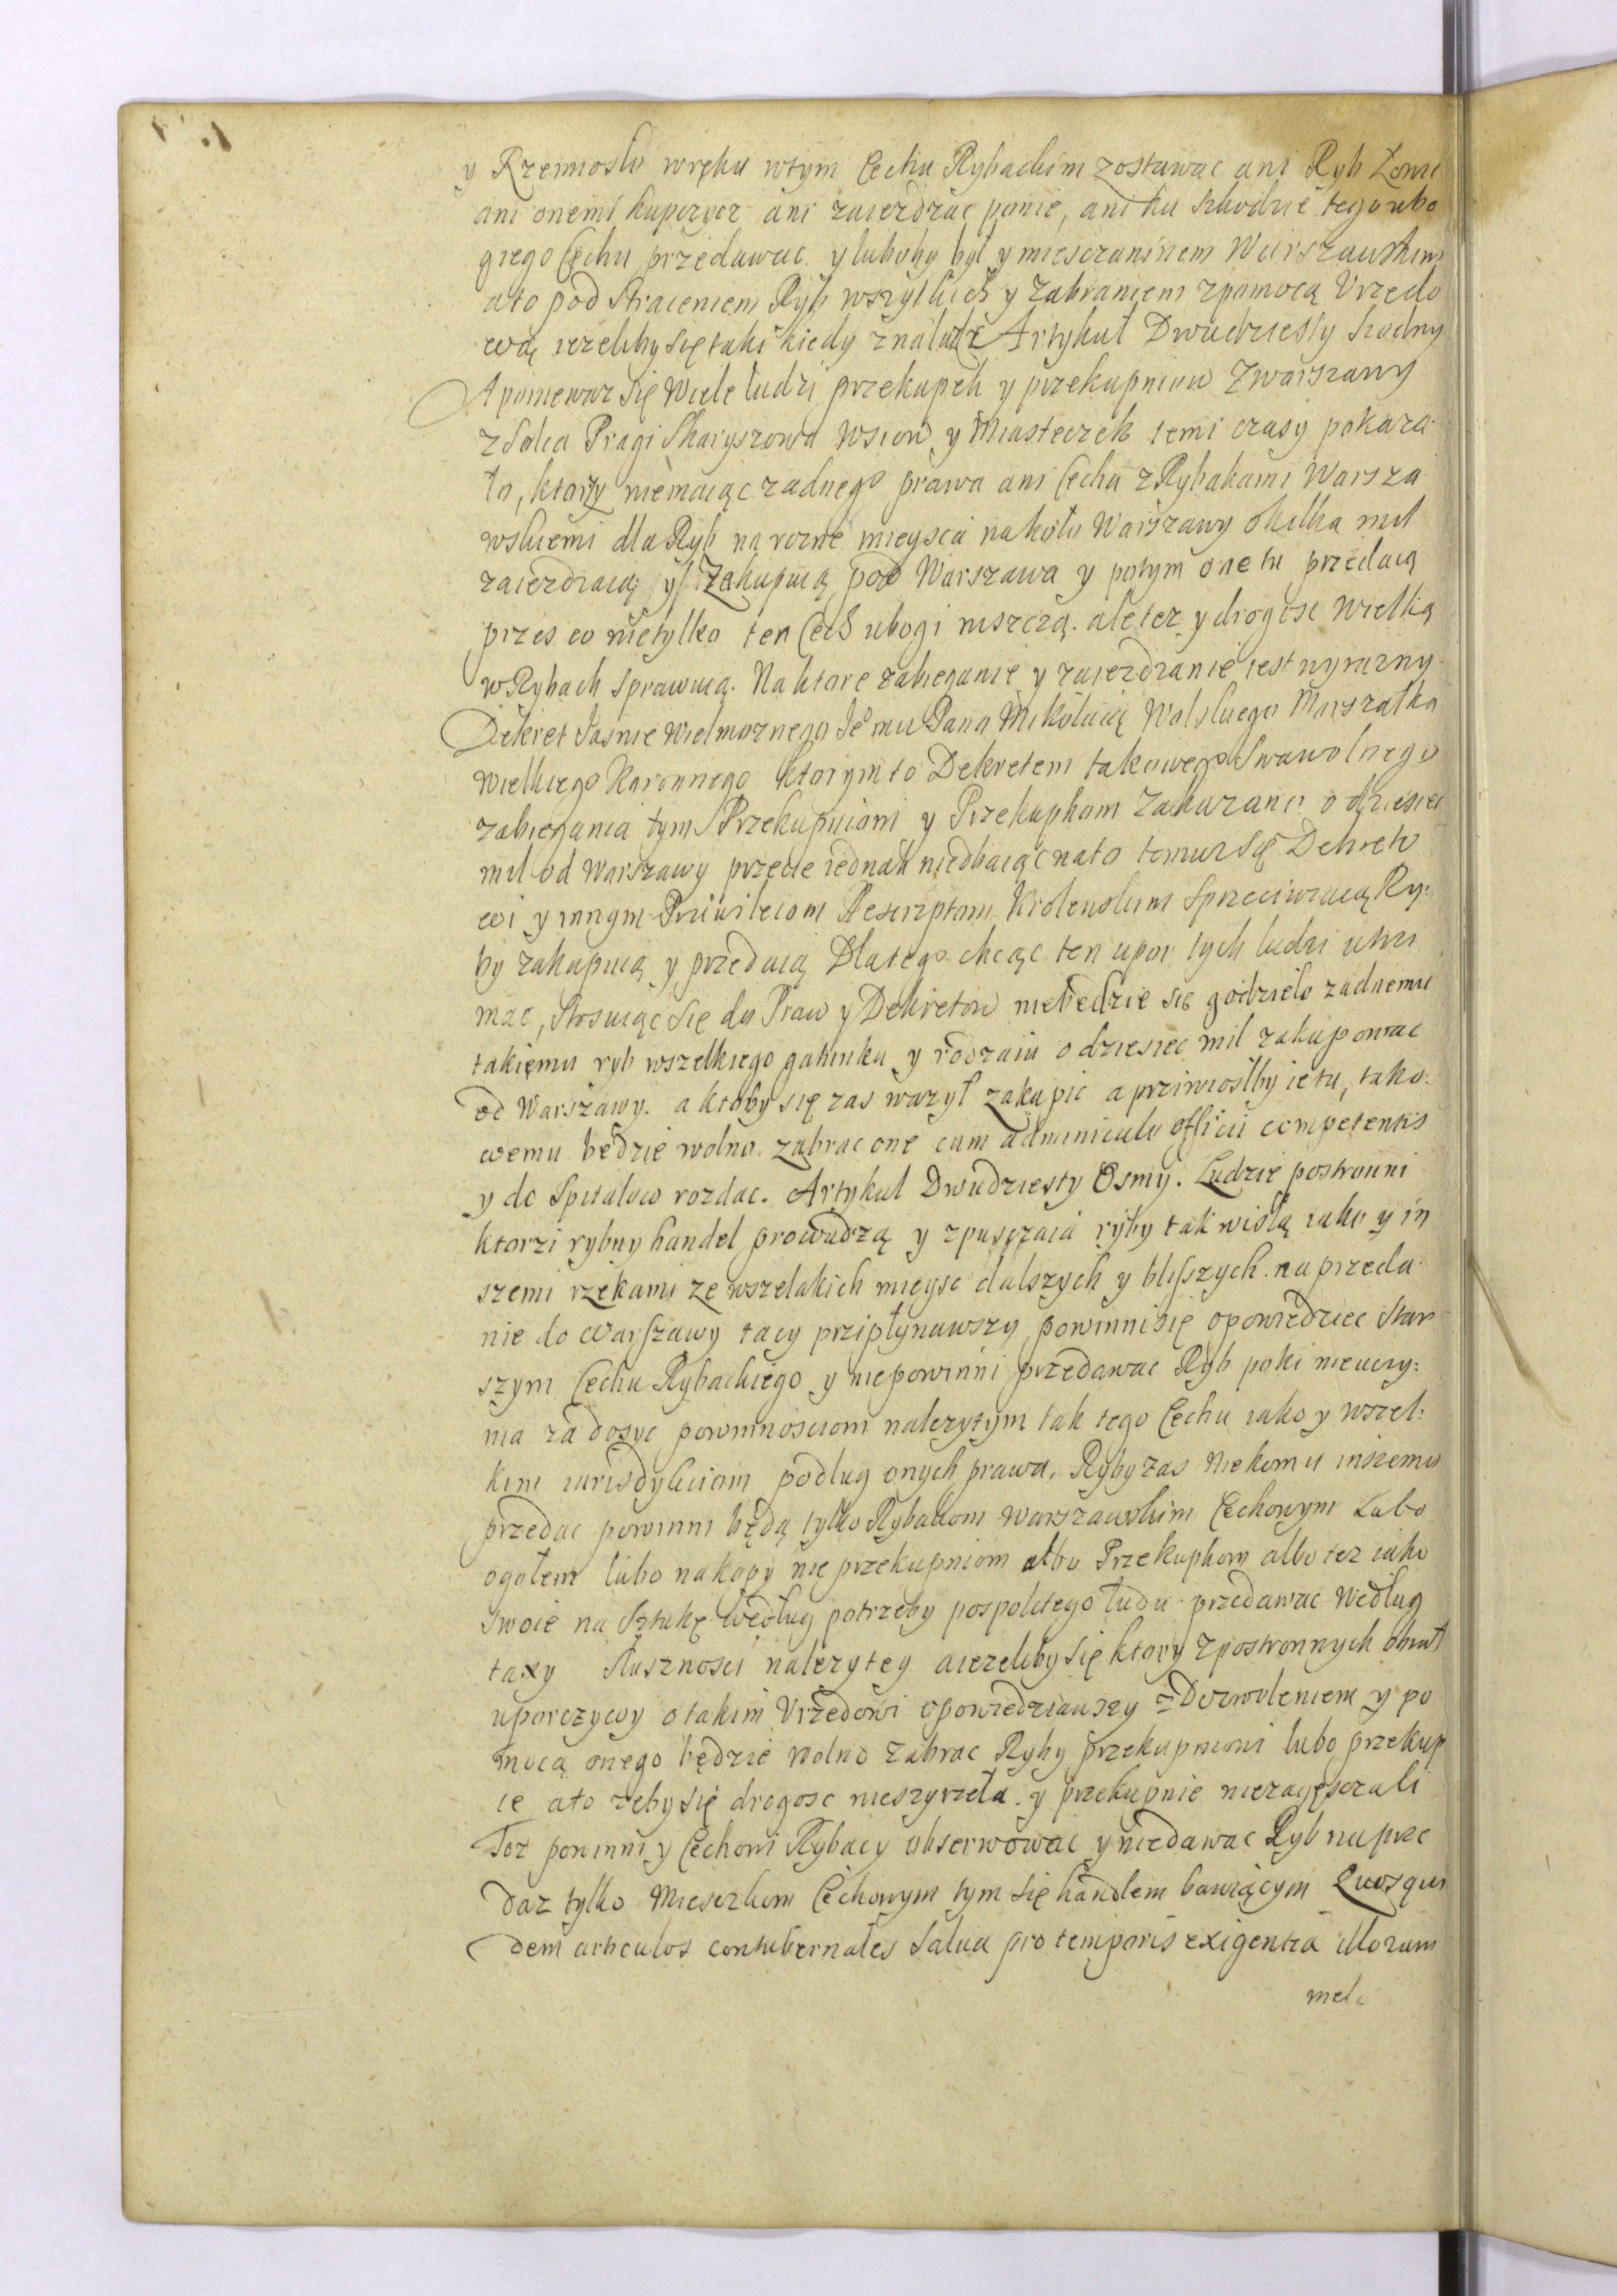 y Rzemiosło wręku wtym Cechu Rybackim zostawac ani Ryb Łowic
ani onemi kupczycz ani zaierdzac ponie, ani ku szkodzie tego ubo
giego Cechu przedawac. y luboby był y miesczaninem Warszawskim
ato pod straceniem Ryb wszytkich y zabraniem zpomocą Vrzędo
wą iezeliby się taki kiedy znalazł Artykuł Dwudziesty Siodmy
A poniewaz się wiele ludzi przekupek y przekupniow z Warszawy
z Solca Pragi Skaryszowa wsiow y Miasteczek temi czasy pokaza
ło, ktorzy niemaiąc zadnego prawa ani Cechu z Rybakami Warsza
wskiemi dla Ryb na rozne mieysca nakoło Warszawy o kilka mil
zaiezdzaią y zakupuią pod Warszawa y potym one tu przedaią
przes co nietylko ten Cech ubogi niszczą. ale tez y drogosc wielką
w Rybach sprawuią. Na ktore zabieganie y zaiezdzanie iest wyrazny
Dekret Jasnie Wielmoznego Jeo mu Pana Mikołaia Wolskiego Marszałka
Wielkiego Koronnego ktorym to Dekretem takowego swawolnego
zabiegania tym Przekupniom y Przekupkom zakazano o dziesięc
mil od Warszawy przecie iednak niedbaiąc nato temusz się Dekreto
wi y innym Priwileiom Rescriptom Krolewskim sprzeciwiaią Ry:
by zakupuią y przedaią Dlatego chcąc ten upor tych ludzi utrzi
mac, stosuiąc się do Praw y Dekretow niebędzie się godziło zadnemu
takięmu ryb wszelkiego gatunku y rodzaiu o dziesięc mil zakupowac
od Warszawy. a ktoby się zas wazył zakupic a prziniosłby ie tu, tako:
wemu będzie wolno zabrac one cum adminiculo officii competentis
y do Spitalow rozdac. Artykuł Dwudziesty Osmy. Ludzie postronni
ktorzi rybny handel prowadzą y zpusczaia ryby tak wisłą iako y in
szemi rzekami ze wszelakich mieysc dalszych y bliszszych na przeda
nie do Warszawy tacy przipłynąwszy powinni się opowiedziec star
szym Cechu Rybackiego y niepowinni przedawac Ryb poki nieuczy:
nia za dosyc powinnosciom nalezytym tak tego Cechu iako y wszel:
kim iurisdykciom podług onych prawa. Ryby zas niekomu inszemu
przedac powinni będą tylko Rybakom Warszawskim Cechowym Lubo
ogołem lubo na kopy nie przekupniom albo Przekupkom albo tez iako
swoie na sztukę według potrzeby pospolitego ludu przedawac według
taxy słusznosci nalezytey a iezeliby się ktory z postronnych obrał
uporczywy o takim Vrzędowi opowiedziawszy z Dozwoleniem y po
mocą onego będzie wolno zabrac Ryby przekupniowi lubo przekup
ce ato zeby się drogosc nieszyrzeła. y przekupnie niezagęsczali
Toz powinni y Cechowi Rybacy obserwowac y niedawac Ryb na prze
daz tylko Mieszkom Cechowym tym się handlem bawiącym Quos qui
dem articulos contubernales Salua pro temporis exigentia illorum
mel